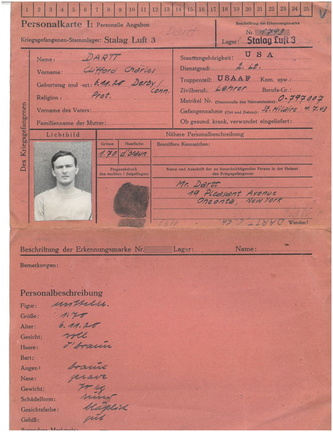 1 2 3 4 5 6 7 8 9 10 11 12 13 14 15 16 17 18 19 20 21 22 23 24 25
Personalkarte I: Personelle Angaben
Kriegsgefangenen-Stammlager: Stalag Luft 3
DARTT
Beschriftung der Erkennungsmarke
Nr.
Lager: Stalag Luft 3
Des Kriegsgefangenen
Name: DARTT
Vorname: Clifford Charles
Geburtstag und -ort: 6.11.20 Derby/Conn.
Religion: Prot.
Vorname des Vaters:
Familienname der Mutter:
Staatsangehörigkeit: USA
Dienstgrad: 2. Lt.
Truppenteil: USAAF Kom. usw.:
Zivilberuf: Lehrer Berufs-Gr.:
Matrikel Nr. (Stammrolle des Heimatstaates): O-797007
Gefangennahme (Ort und Datum): 4.7.43
Ob gesund, krank, verwundet eingeliefert:
Lichtbild
Nähere Personalbeschreibung
Größe
Haarfarbe
Besondere Kennzeichen:
1.70
Fingerabdruck
des rechten Zeigefingers
Name und Anschrift der zu benachrichtigenden Person in der Heimat
des Kriegsgefangenen
Mr. Dartt
19 Pleasant Avenue
Oneonta, New York
Beschriftung der Erkennungsmarke Nr. Lager: Name:
Bemerkungen:
Personalbeschreibung
Figur:
Größe: 1.70
Alter: 6.11.20
Gesicht: voll
Haare: d'braun
Bart:
Augen: braun
Nase: grade
Gewicht: 70 kg
Schädelform:
Gesichtsfarbe:
Gebiß: gut